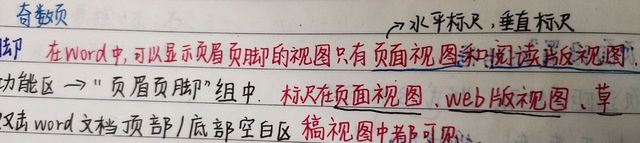 奇数页
→水平标尺，垂直标尺
脚 在word中，可以显示页眉页脚的视图只有页面视图和阅读版视图。
功能区→“页眉页脚”组中. 标尺在页面视图、web版视图、草
双击word文档顶部/底部空白区 稿视图中都可见。